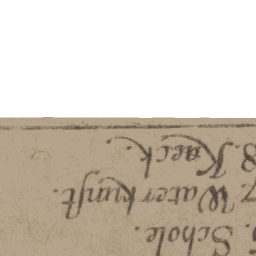 6. Schole.
7. Waterkunst.
8. Kaeck.